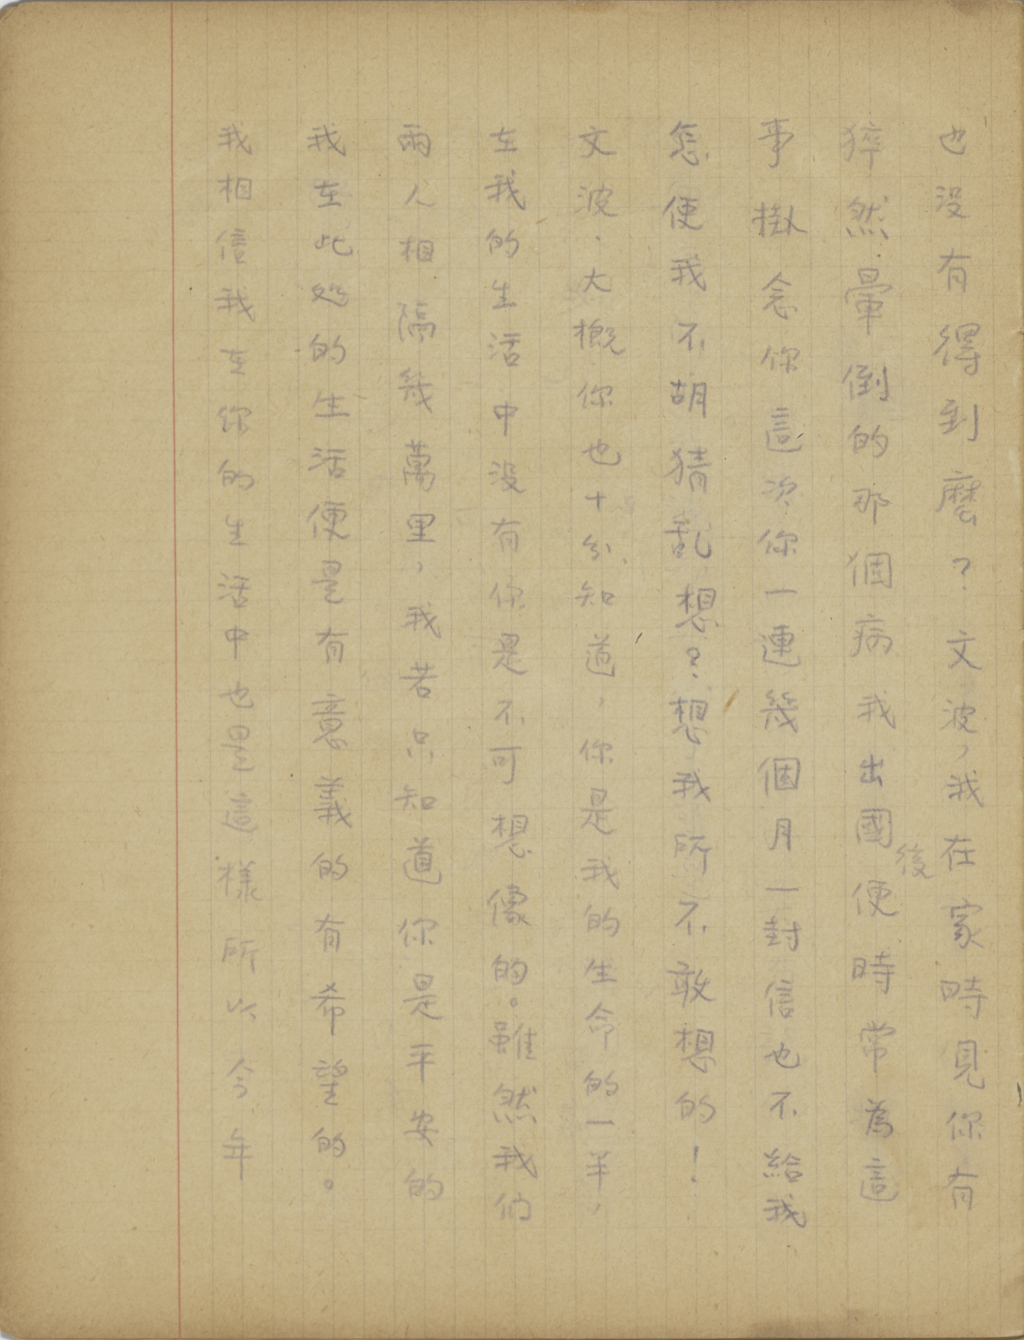 也没有得到麼？文波，我在家時見你有
猝然暈倒的那個病我出國後便時常為這
事掛念你這次你一連幾個月一封信也不給我
怎使我不胡猜乱想？想我所不敢想的！
文波．大概你也十分知道，你是我的生命的一半，
在我的生活中没有你是不可想像的。雖然我们
兩人相隔幾萬里，我若只知道你是平安的
我在此処的生活便是有意義的有希望的。
我相信我在你的生活中也是這樣所以今年